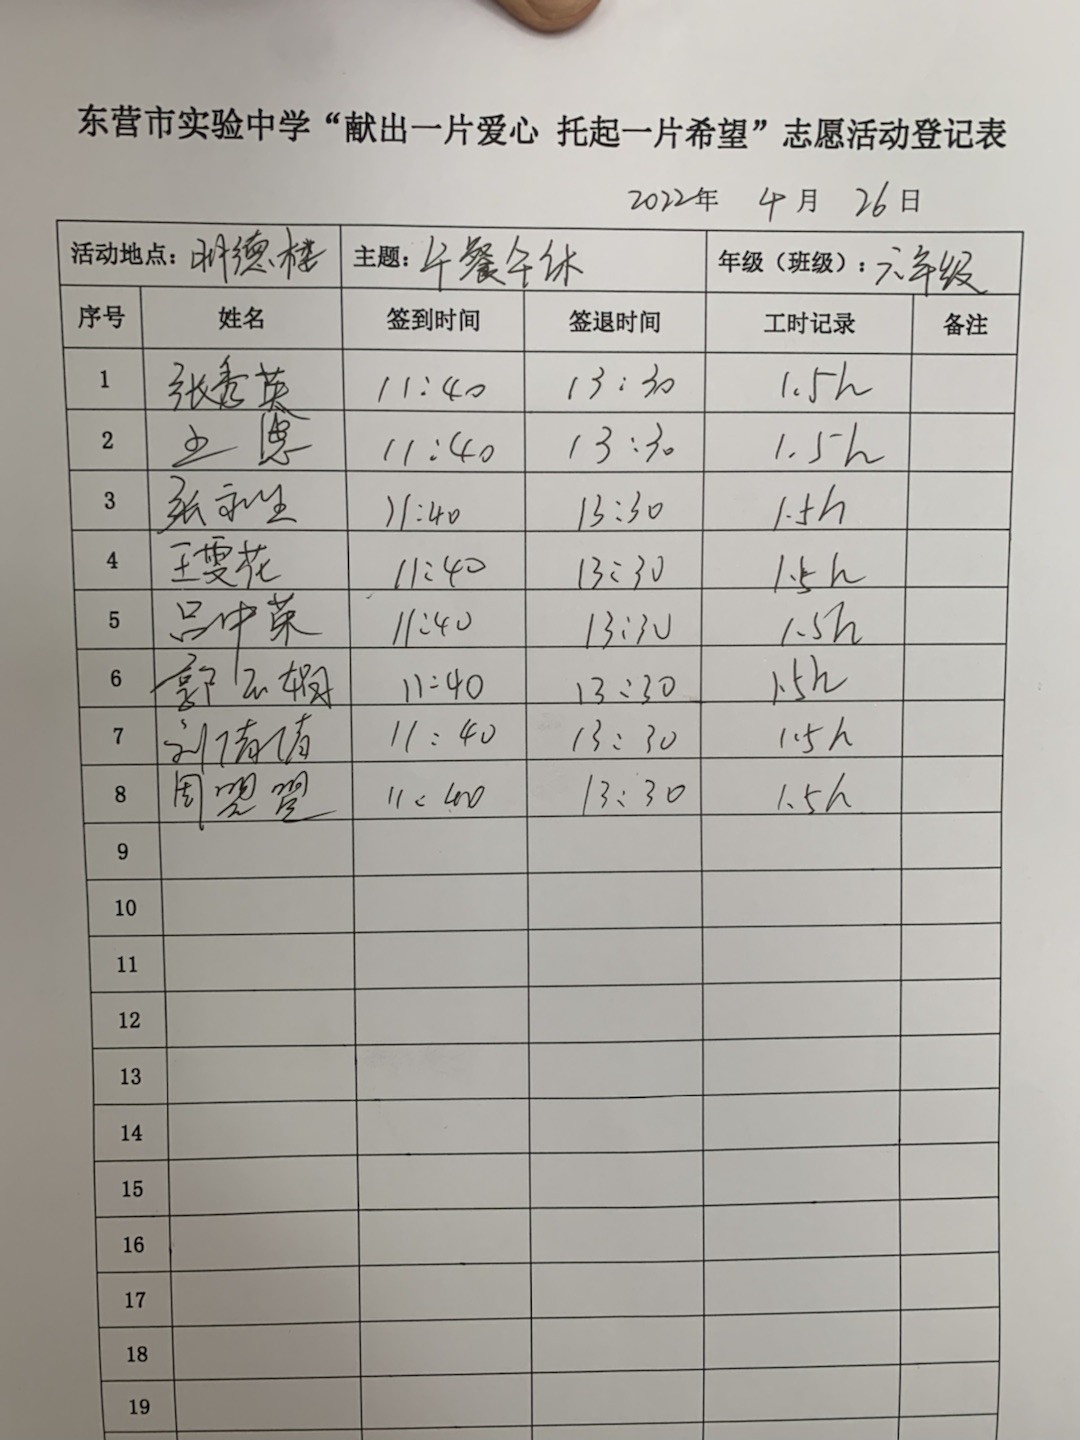 东营市实验中学“献出一片爱心 托起一片希望”志愿活动登记表
2022年 4月 26日
活动地点：明德楼 主题：午餐午休 年级（班级）：六年级
序号 姓名 签到时间 签退时间 工时记录 备注
1 张秀英 11:40 13:30 1.5h
2 11:40 13:30 1.5h
3 张永生 11:40 13:30 1.5h
4 王雯花 11:40 13:30 1.5h
5 吕中英 11:40 13:30 1.5h
6 郭 11:40 13:30 1.5h
7 刘倩倩 11:40 13:30 1.5h
8 周 11:40 13:30 1.5h
9
10
11
12
13
14
15
16
17
18
19